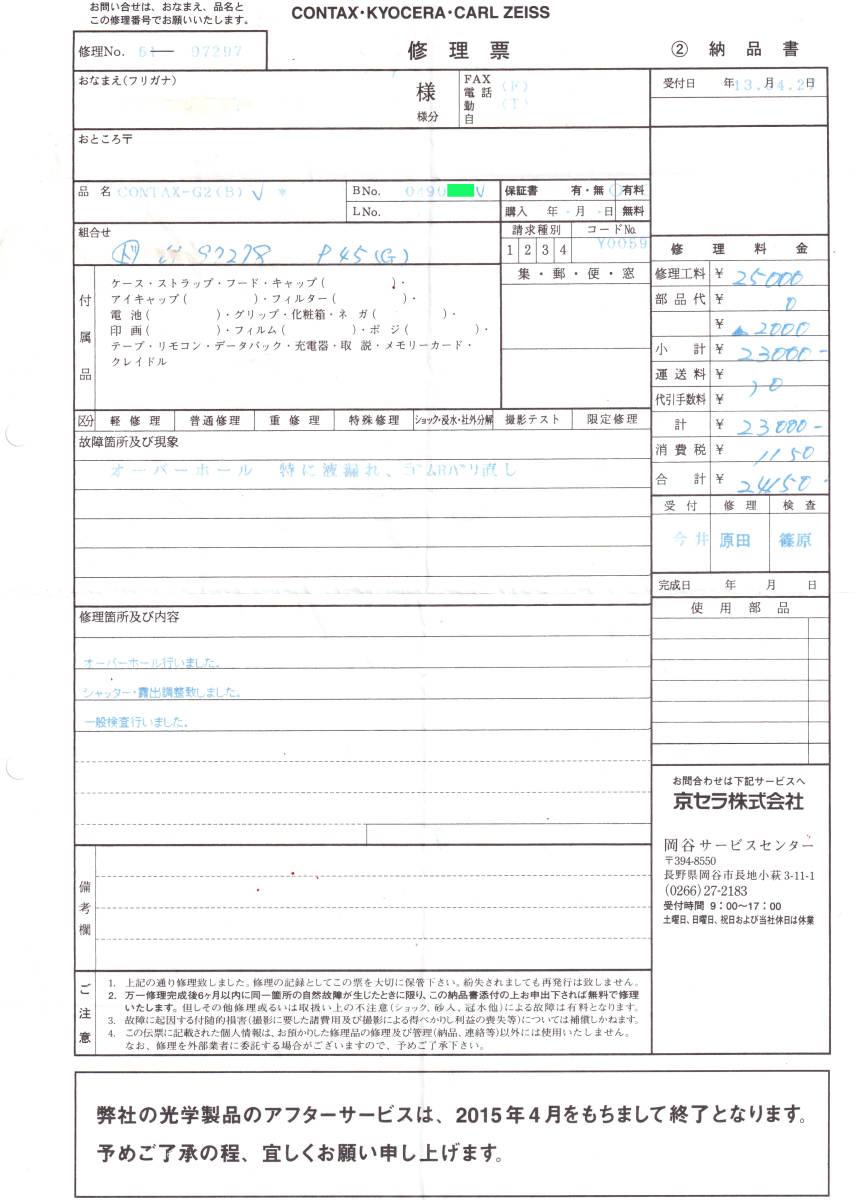 お問い合せは、おなまえ、品名と
この修理番号でお願いいたします。
CONTAX・KYOCERA・CARL ZEISS
修理No. 61― 97297
修理票
② 納品書
おなまえ(フリガナ)
様
様分
FAX (F)
電話 (T)
勤
自
受付日 年 13.04.2 月 日
おところ〒
品名 CONTAX-G2(B) *
BNo. 0490 V
LNo.
保証書 有・無 有料
購入 年 ・月 ・日 無料
組合せ
97278 P45(G)
請求種別 コードNo.
1 2 3 4 Y0059
集・郵・便・窓
付属品
ケース・ストラップ・フード・キャップ( )・
アイキャップ( )・フィルター( )・
電池( )・グリップ・化粧箱・ネガ( )・
印画( )・フィルム( )・ポジ( )・
テープ・リモコン・データバック・充電器・取説・メモリーカード・
クレイドル
修理料金
修理工料 ¥ 25000
部品代 ¥ 0
¥ ▲2000
小計 ¥ 23000-
運送料 ¥
代引手数料 ¥
計 ¥ 23000-
消費税 ¥ 1150
合計 ¥ 24150-
区分 軽修理 普通修理 重修理 特殊修理 ショック・浸水・社外分解 撮影テスト 限定修理
故障箇所及び現象
オーバーホール 特に液漏れ、ゴムハバリ直し
受付 修理 検査
今井 原田 篠原
完成日 年 月 日
使用部品
修理箇所及び内容
オーバーホール行いました。
シャッター・露出調整致しました。
一般検査行いました。
備考欄
お問合わせは下記サービスへ
京セラ株式会社
岡谷サービスセンター
〒394-8550
長野県岡谷市長地小萩3-11-1
(0266)27-2183
受付時間 9:00〜17:00
土曜日、日曜日、祝日および当社休日は休業
ご注意
1. 上記の通り修理致しました。修理の記録としてこの票を大切に保管下さい。紛失されましても再発行は致しません。
2. 万一修理完成後6ヶ月以内に同一箇所の自然故障が生じたときに限り、この納品書添付の上お申出下されば無料で修理
いたします。但しその他修理或るいは取扱い上の不注意(ショック、砂入、冠水他)による故障は有料となります。
3. 故障に起因する付随的損害(撮影に要した諸費用及び撮影による得べかりし利益の喪失等)については補償しかねます。
4. この伝票に記載された個人情報は、お預かりした修理品の修理及び管理(納品、連絡等)以外には使用いたしません。
なお、修理を外部業者に委託する場合がございますので、予めご了承下さい。
弊社の光学製品のアフターサービスは、2015年4月をもちまして終了となります。
予めご了承の程、宜しくお願い申し上げます。